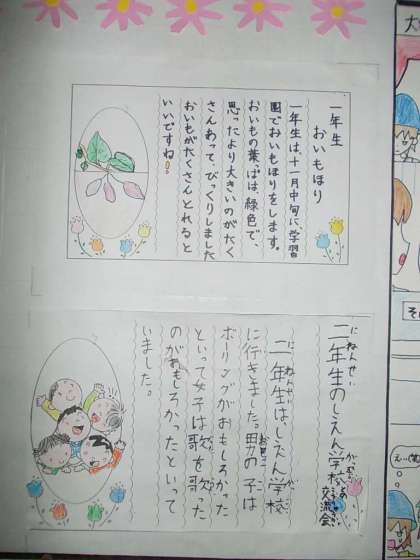 一年生
おいもほり
一年生は、十一月中旬に学習
園でおいもほりをします。
おいもの葉っぱは緑色で、
思ったより大きいのがたく
さんあって、びっくりしました
おいもがたくさんとれると
いいですね!!
二年生のしえん学校交流会
にねんせい
がっこう
二年生は、しえん学校
にねんせい
に行きました。男の子は
ボーリングがおもしろかった
といって女子は歌を歌った
のがおもしろかったといって
いました。